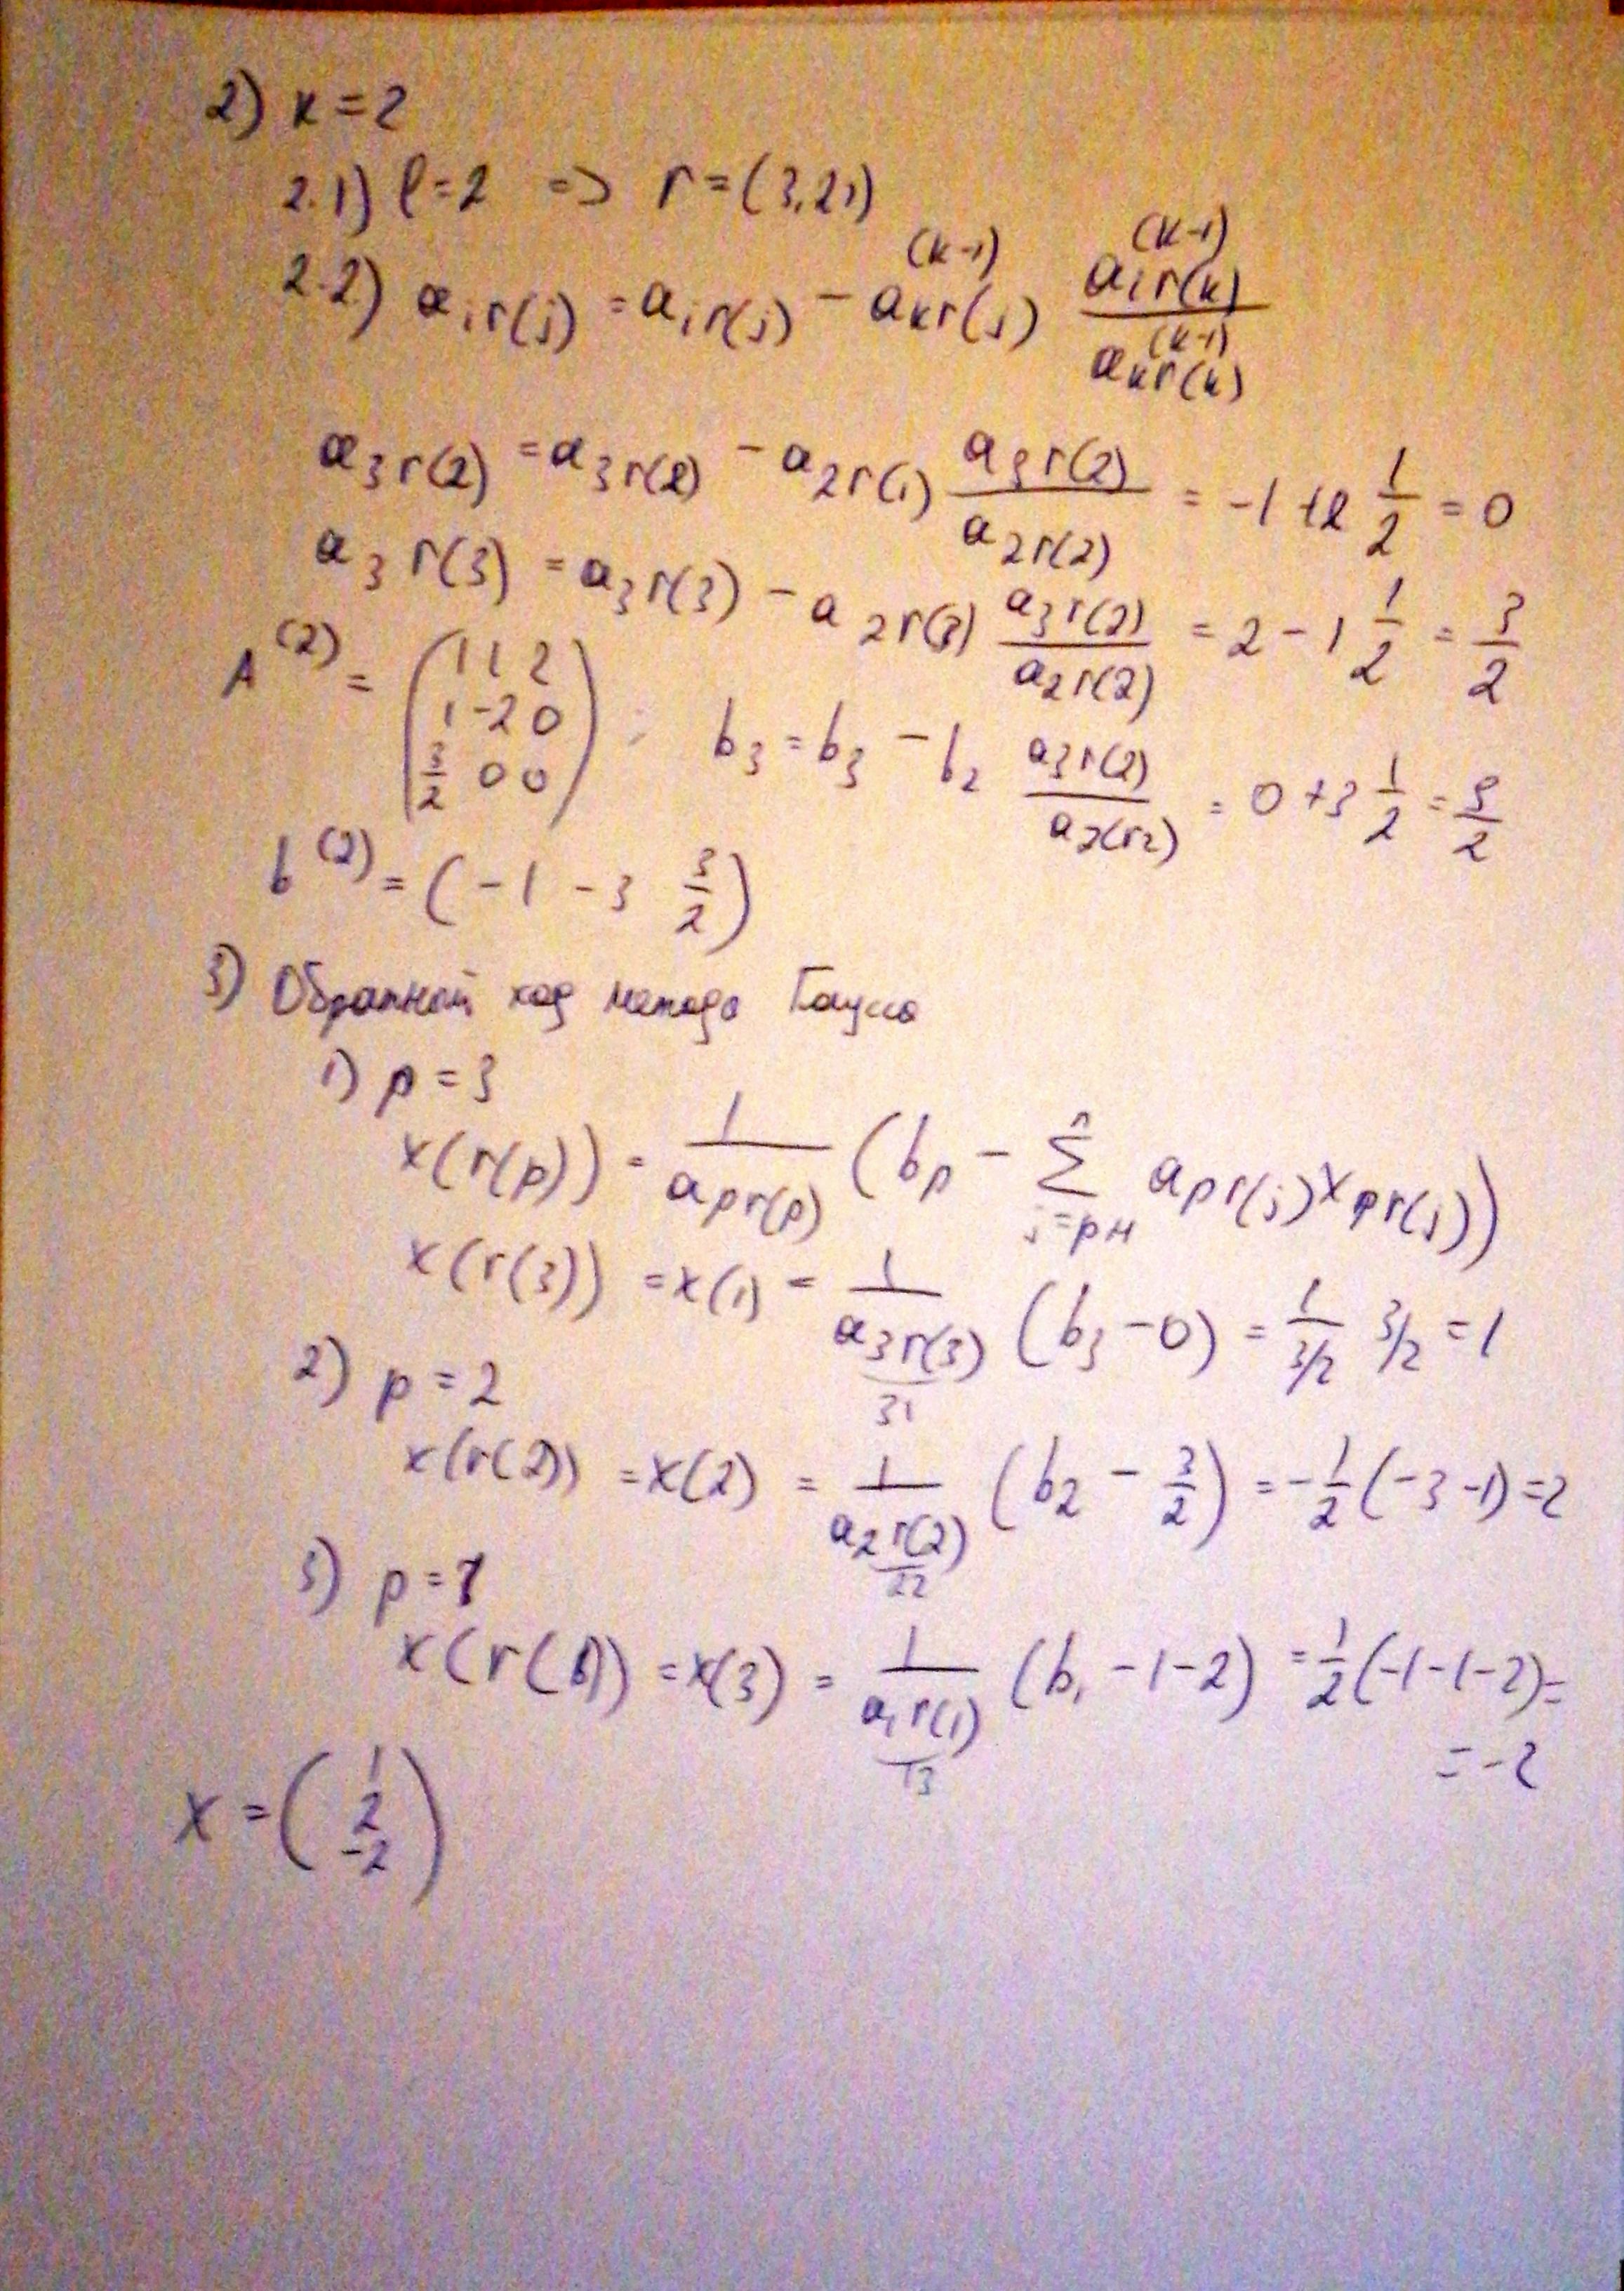 2) k=2
2.1) l=2 => r=(3,2,1)
2.2) a_{i r(j)} = a_{i r(j)} - a_{k r(j)}^{(k-1)} \frac{a_{i r(k)}^{(k-1)}}{a_{k r(k)}^{(k-1)}}
a_{3 r(2)} = a_{3 r(2)} - a_{2 r(1)} \frac{a_{3 r(2)}}{a_{2 r(2)}} = -1 + 2 \frac{1}{2} = 0
a_{3 r(3)} = a_{3 r(3)} - a_{2 r(3)} \frac{a_{3 r(2)}}{a_{2 r(2)}} = 2 - 1 \frac{1}{2} = \frac{3}{2}
A^{(2)} = \begin{pmatrix} 1 & 1 & 2 \\ 1 & -2 & 0 \\ \frac{3}{2} & 0 & 0 \end{pmatrix}; b_3 = b_3 - b_2 \frac{a_{3 r(2)}}{a_{2(r2)}} = 0 + 3 \frac{1}{2} = \frac{3}{2}
b^{(2)} = (-1 -3 \frac{3}{2})
3) Обратный ход метода Гаусса
1) p = 3
x(r(p)) = \frac{1}{a_{p r(p)}} (b_p - \sum_{j=p+1}^{n} a_{p r(j)} x_{p r(j)})
x(r(3)) = x(1) = \frac{1}{a_{3 r(3)}} (b_3 - 0) = \frac{1}{3/2} 3/2 = 1
31
2) p = 2
x(r(2)) = x(2) = \frac{1}{a_{2 r(2)}} (b_2 - \frac{3}{2}) = -\frac{1}{2} (-3 -1) = 2
22
3) p = 1
x(r(1)) = x(3) = \frac{1}{a_{1 r(1)}} (b_1 - 1 - 2) = \frac{1}{2} (-1 -1 -2) =
13
= -2
x = \begin{pmatrix} 1 \\ 2 \\ -2 \end{pmatrix}